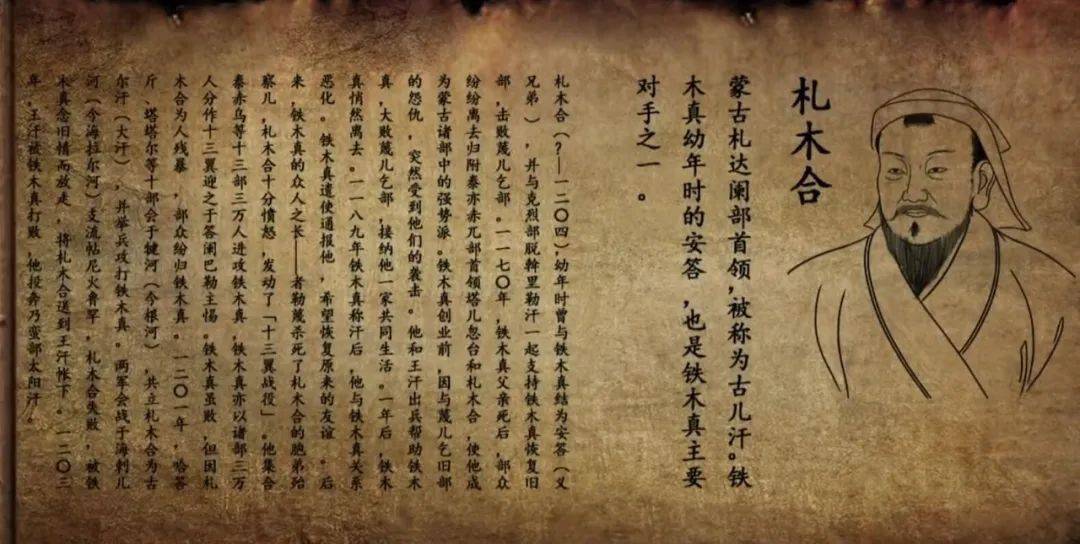 札木合
蒙古札达阑部首领,被称为古儿汗。铁
木真幼年时的安答,也是铁木真主要
对手之一。
札木合(?—一二〇四),幼年时曾与铁木真结为安答(义
兄弟),并与克烈部脱斡里勒汗一起支持铁木真恢复旧
部,击败蔑儿乞部。一一七〇年,铁木真父亲死后,部众
纷纷离去归附泰亦赤兀部首领塔儿忽台和札木合,使他成
为蒙古诸部中的强势派。铁木真创业前,因与蔑儿乞旧部
的怨仇,突然受到他们的袭击。他和王汗出兵帮助铁木
真,大败蔑儿乞部,接纳他一家共同生活。一年后,铁木
真悄然离去。一一八九年铁木真称汗后,他与铁木真关系
恶化。铁木真遣使通报他,希望恢复原来的友谊。后
来,铁木真的众人之长——者勒蔑杀死了札木合的胞弟殆
察儿,札木合十分愤怒,发动了「十三翼战役」。他集合
泰赤乌等十三部三万人进攻铁木真,铁木真亦以诸部三万
人分作十三翼迎之于答阑巴勒主惕。铁木真虽败,但因札
木合为人残暴,部众纷归铁木真。一二〇一年,哈答
斤、塔塔尔等十部会于犍河(今根河),共立札木合为古
尔汗(大汗),并举兵攻打铁木真。两军会战于海剌儿
河(今海拉尔河)支流帖尼火鲁罕,札木合失败,被铁
木真念旧情而放走,将札木合送到王汗帐下。一二〇三
年,王汗被铁木真打败,他投奔乃蛮部太阳汗。